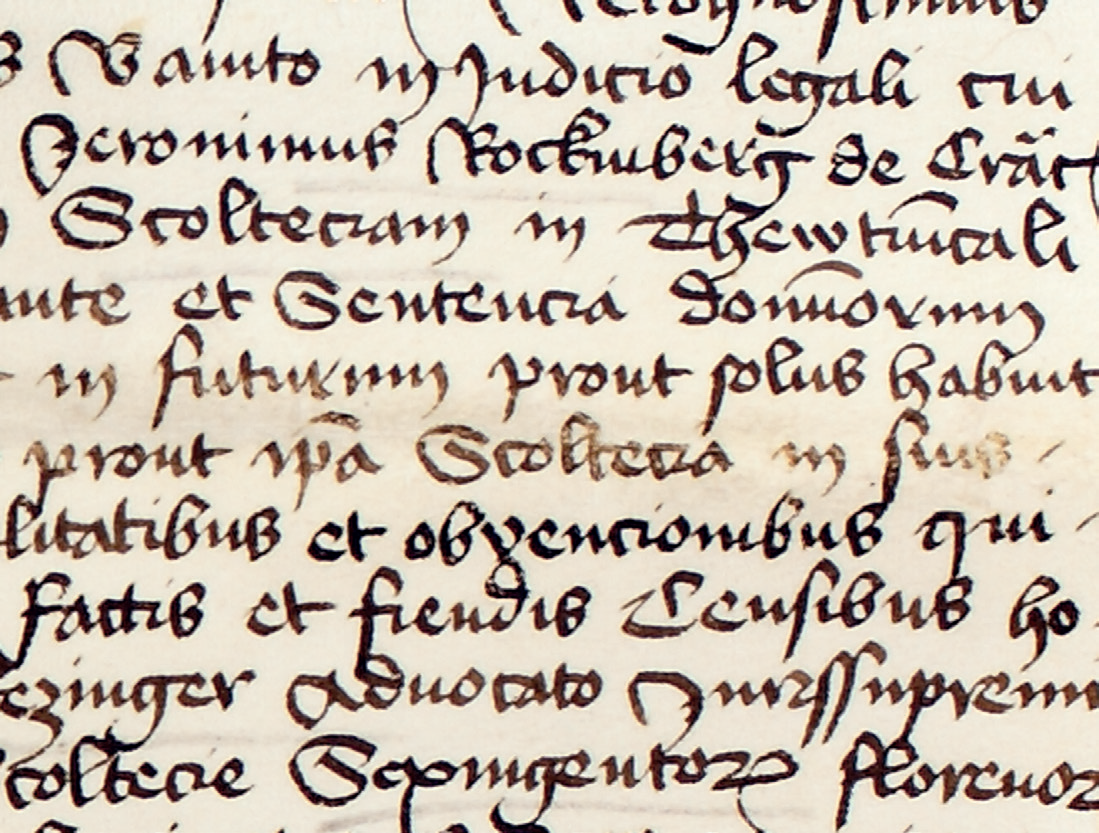 Vanito in Judicio legali cui
Jeronimus Rockinberg de Crac
Scolteciam in Thewtunicali
et Sentencia dominorum
in futurum prout solus habuit
prout ipa Scoltecia in suis
litatibus et obvencionibus qui
factis et fiendis Censibus ho
ezinger Advocato Juris supremi
coltecie Sexingentorum florenor